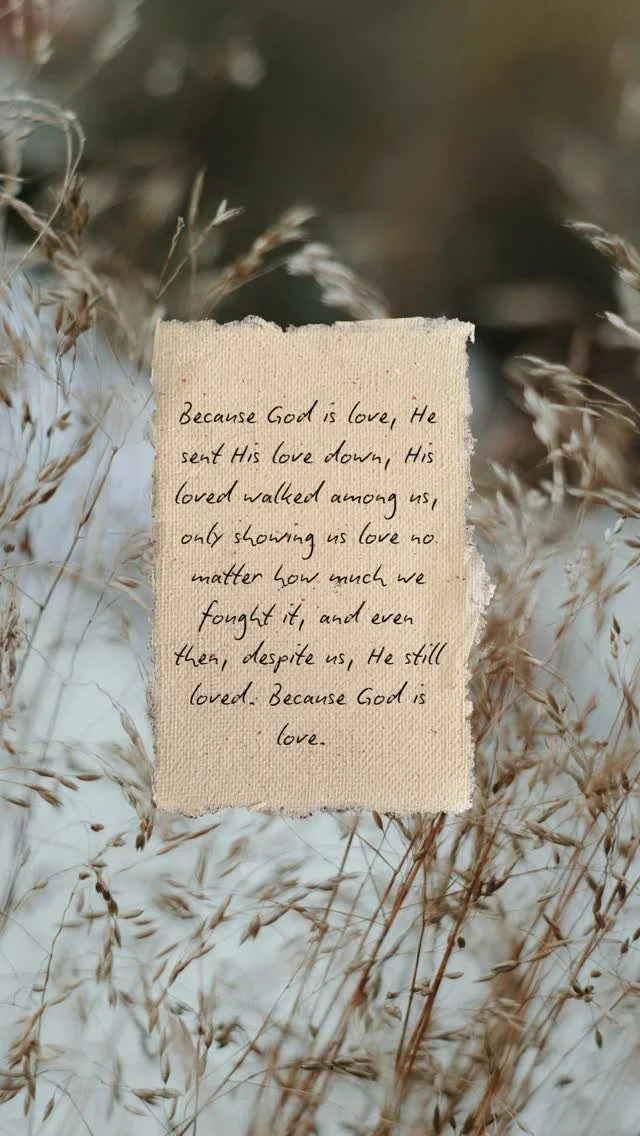 Because God is love, He
sent His love down, His
loved walked among us,
only showing us love no
matter how much we
fought it, and even
then, despite us, He still
loved. Because God is
love.